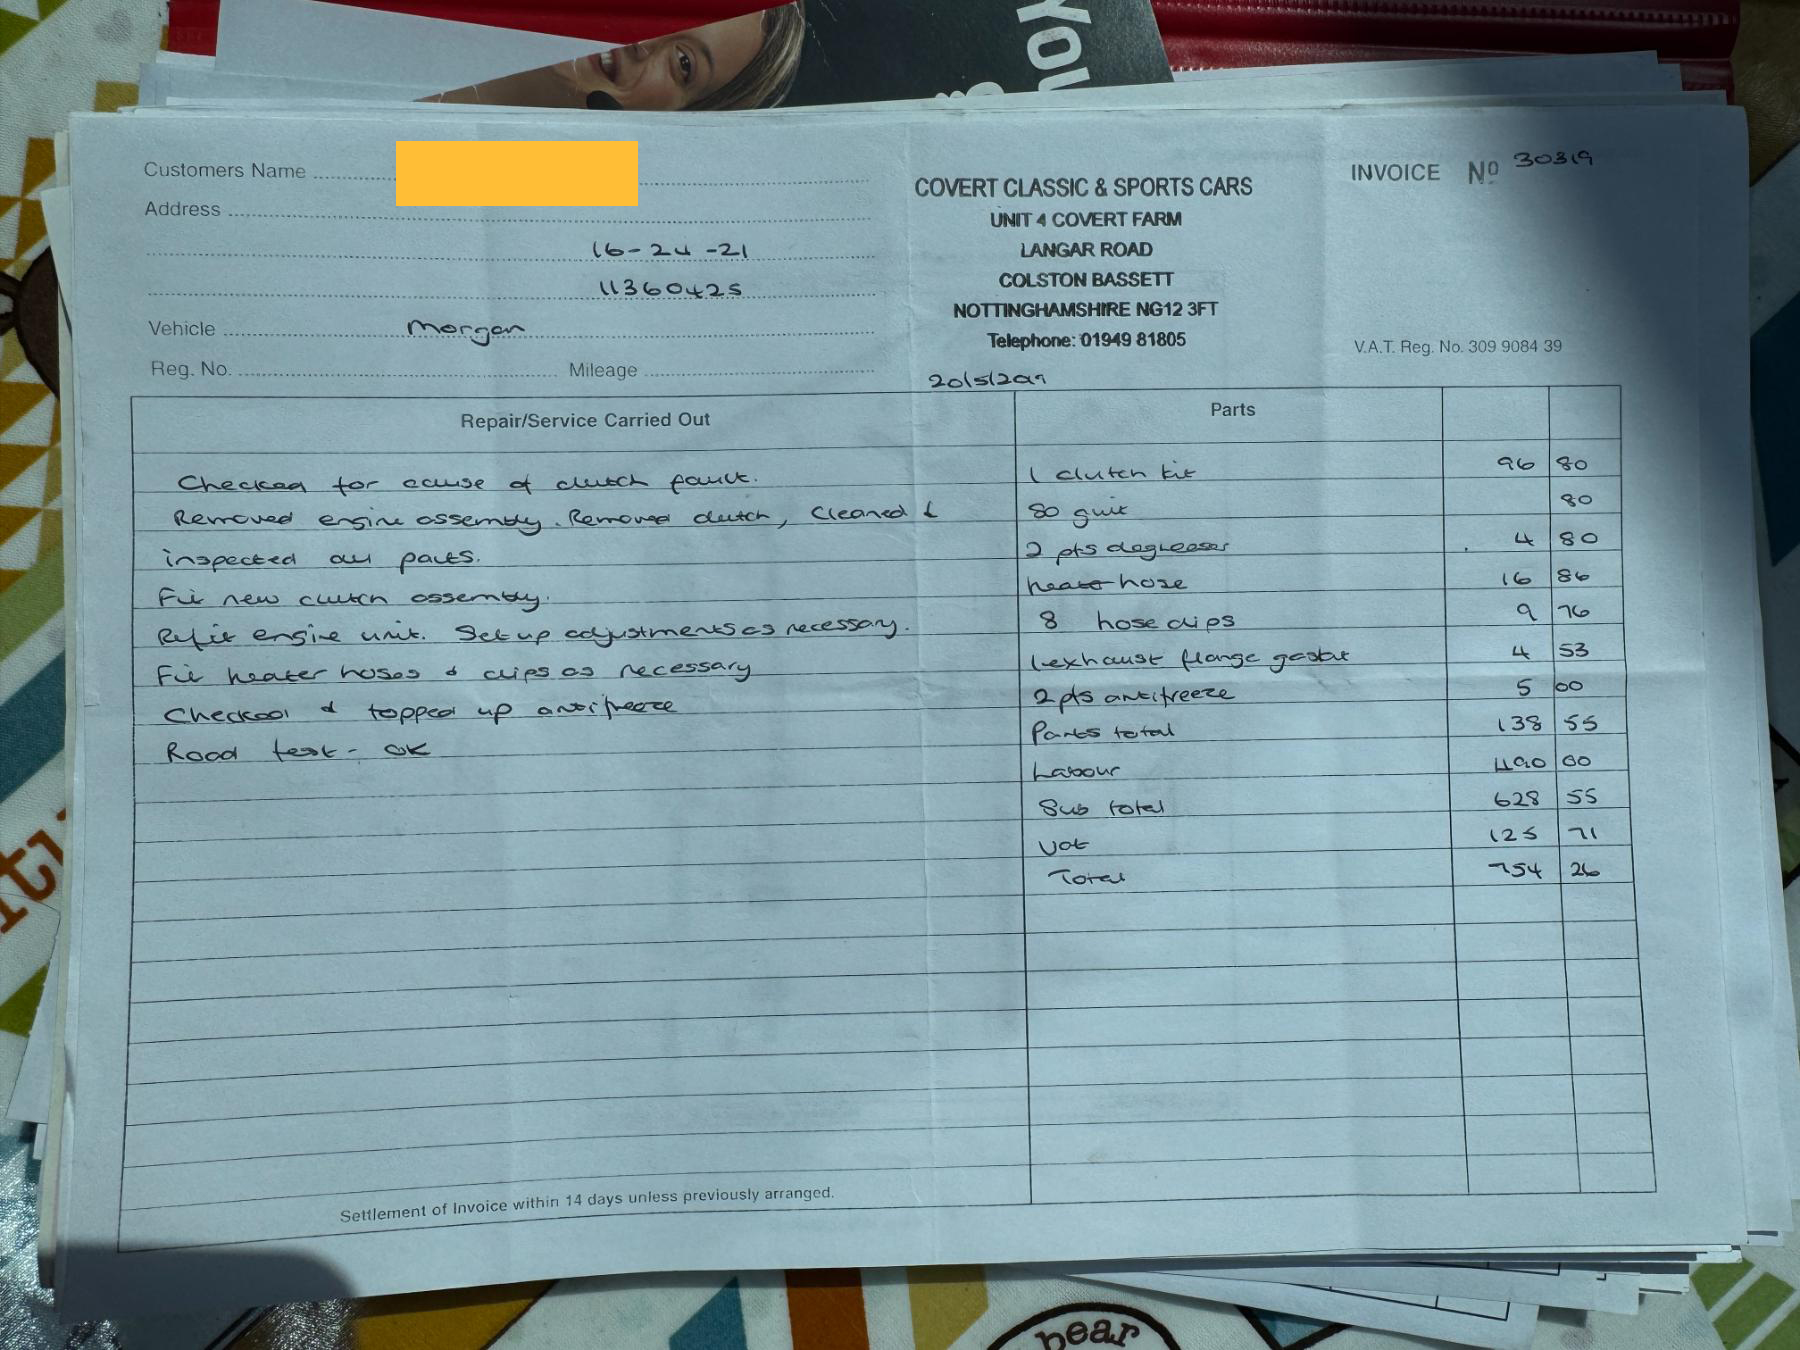 You
Customers Name
Address
16-24-21
11360425
Vehicle Morgan
Reg. No. Mileage
COVERT CLASSIC & SPORTS CARS
UNIT 4 COVERT FARM
LANGAR ROAD
COLSTON BASSETT
NOTTINGHAMSHIRE NG12 3FT
Telephone: 01949 81805
INVOICE Nº 30319
V.A.T. Reg. No. 309 9084 39
20/5/2019
Repair/Service Carried Out
Checked for cause of clutch fault.
Removed engine assembly. Removed clutch, cleaned &
inspected all parts.
Fit new clutch assembly.
Refit engine unit. Set up adjustments as necessary.
Fit heater hoses & clips as necessary
Checked & topped up antifreeze
Road test - OK
Parts
1 clutch kit 96 80
80
2 pts degreaser 4 80
heater hose 16 86
8 hose clips 9 76
1 exhaust flange gasket 4 53
2 pts antifreeze 5 00
Parts total 138 55
Labour 490 00
Sub total 628 55
Vat 125 71
Total 754 26
Settlement of Invoice within 14 days unless previously arranged.
bear